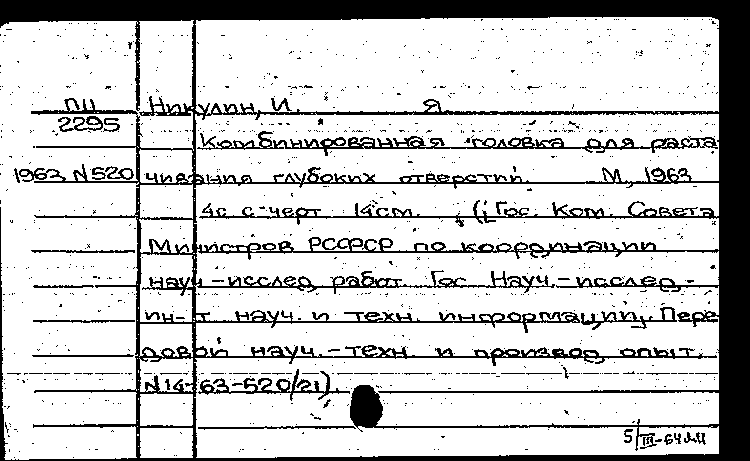 ПЦ Никулин, И. Я.
2295
Комбинированная головка для раста
1963 N520 чивания глубоких отверстий. М, 1963
4с с черт 14см. (Гос. Ком. Совета
Министров РСФСР по координации
науч-исслед работ. Гос Науч.-исслед.-
ин-т науч. и техн. информации. Пере
довой науч.-техн. и производ опыт.
N14-63-520/21).
5/III-64